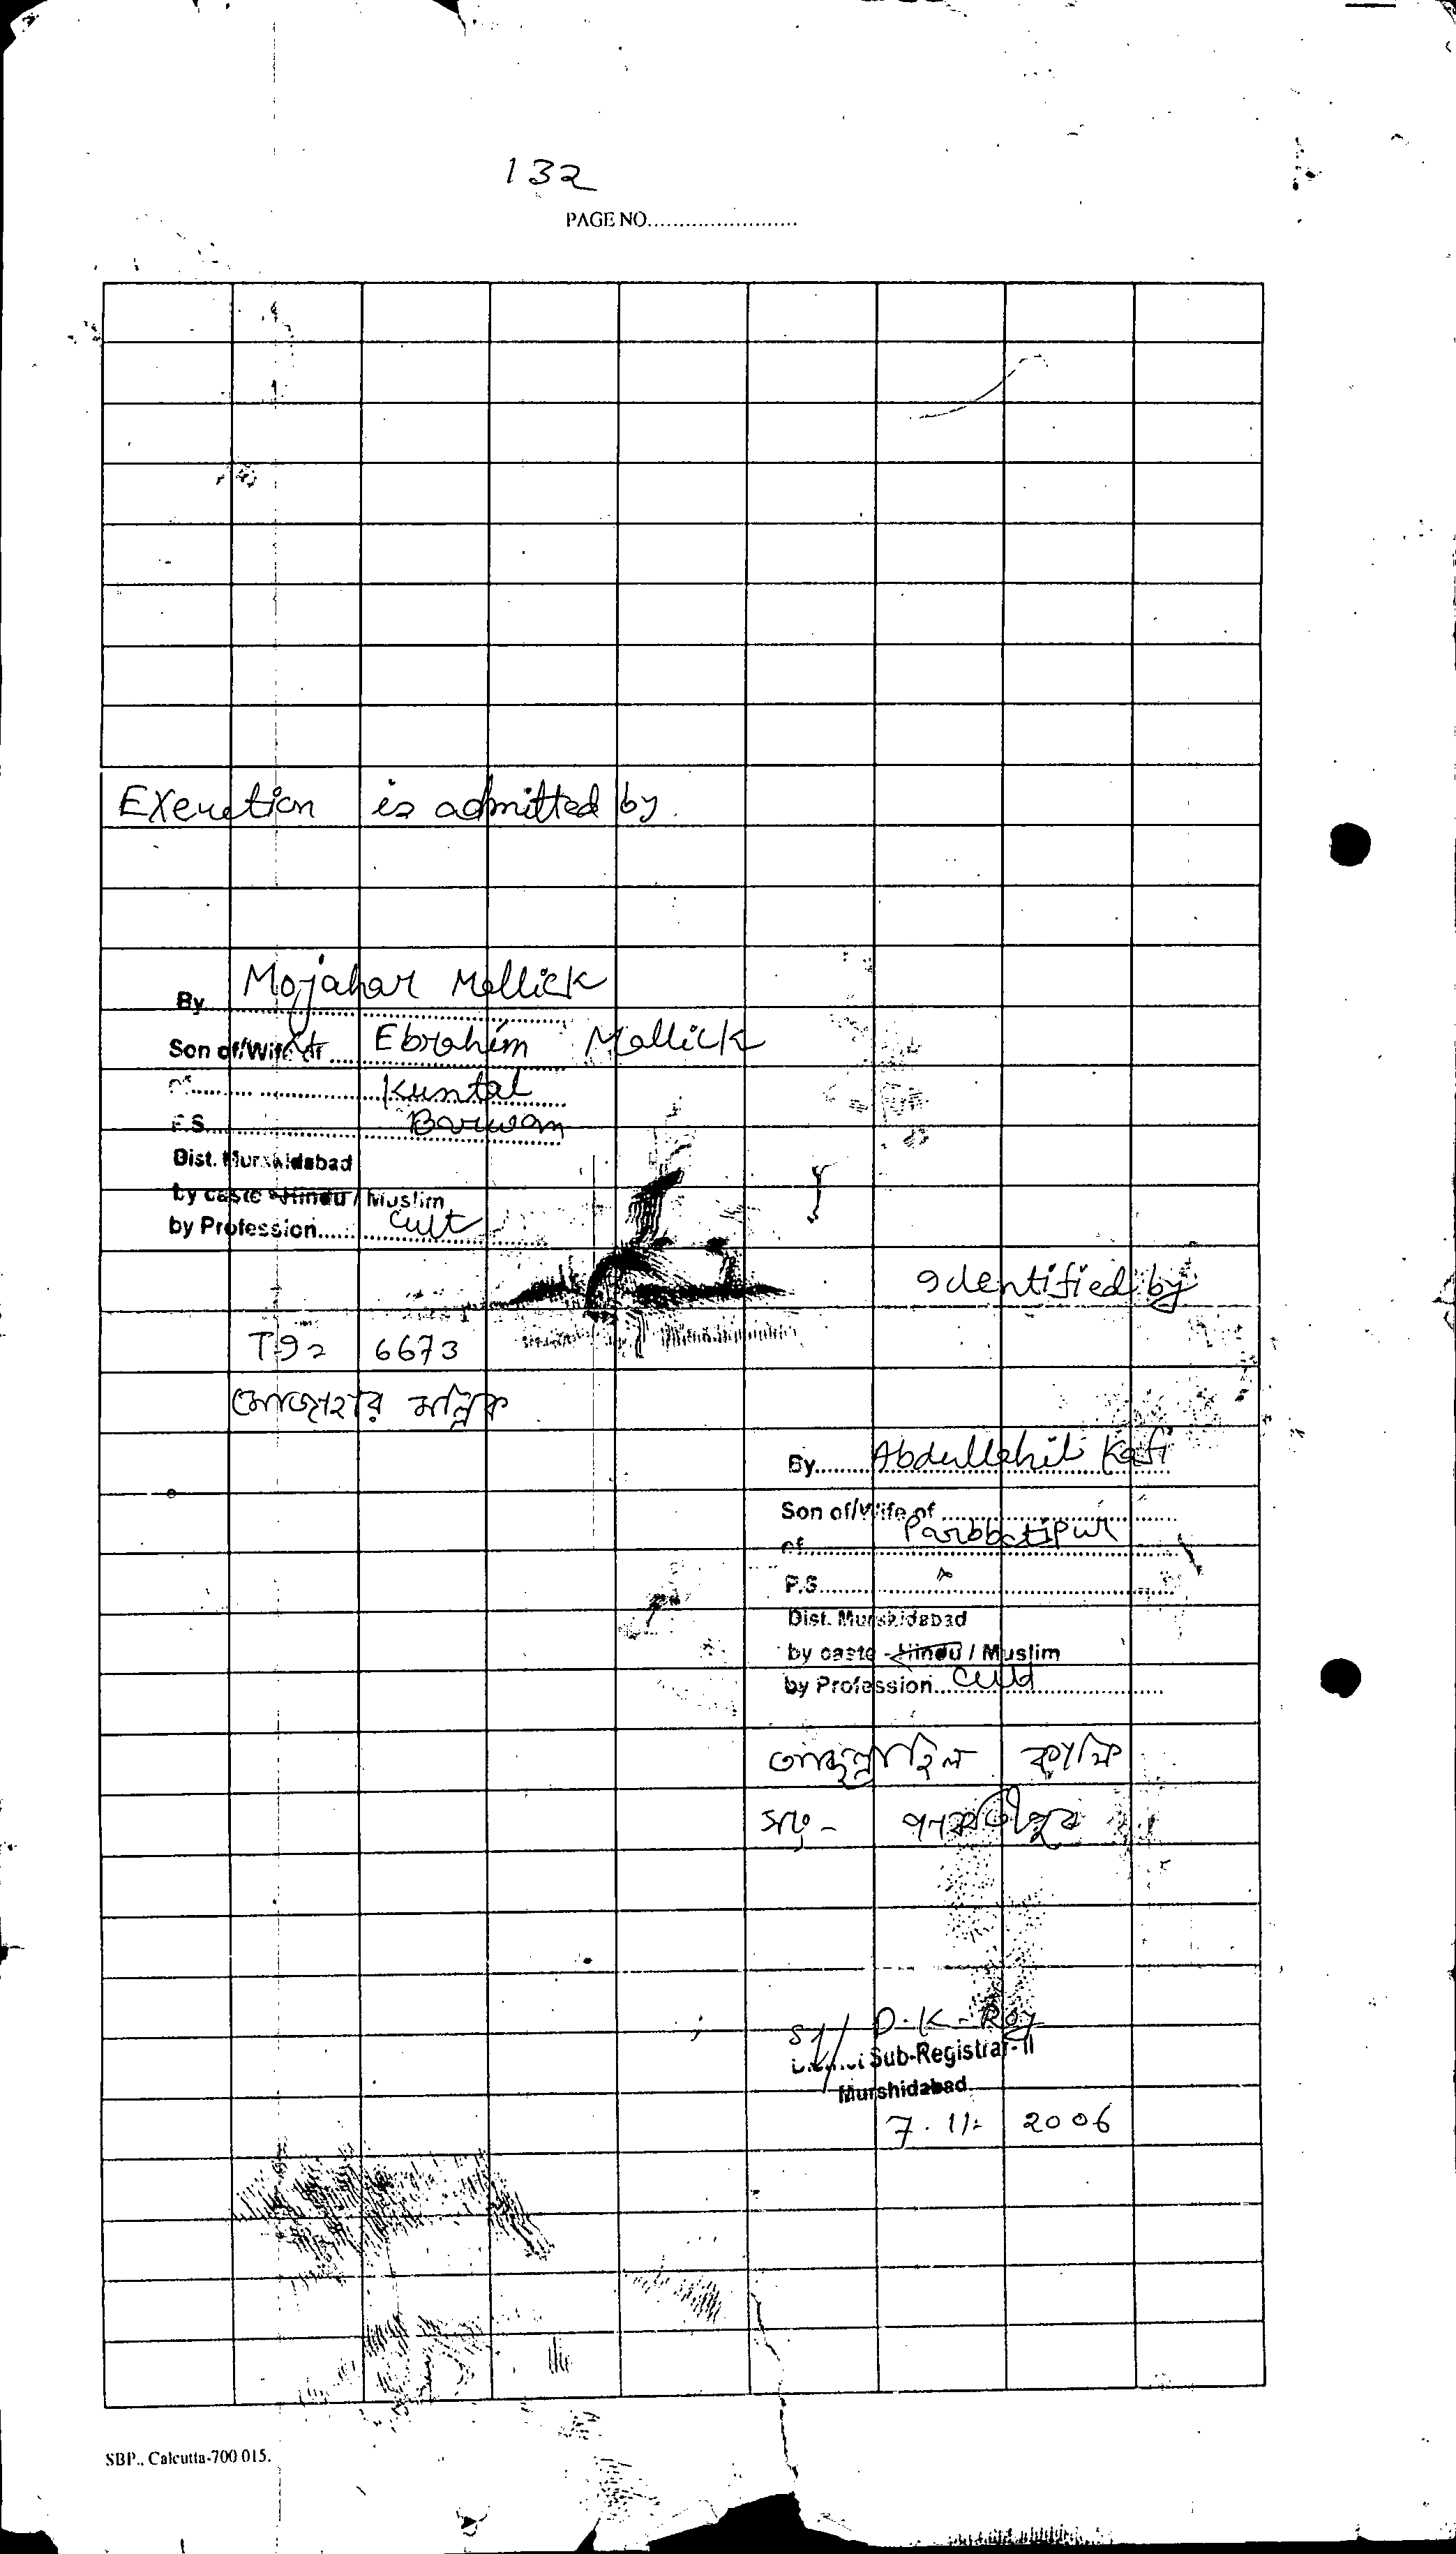 132
PAGE NO........................
Execution is admitted by.
By Mojahar Mollick
Son of/Wife of Ebrahim Mollick
of Kuntal
P.S. Barwan
Dist. Murshidabad
by caste Hindu / Muslim
by Profession Cult
Identified by
6673
মোজাহার মল্লিক
By Abdullahil Kafi
Son of/Wife of
of Parbbatipur
P.S.
Dist. Murshidabad
by caste Hindu / Muslim
by Profession Cult
আব্দুল্লাহিল কাফি
সাং- পার্বতীপুর
Sd/ D.K. Roy
District Sub-Registrar-II
Murshidabad
7.11. 2006
SBP., Calcutta-700 015.